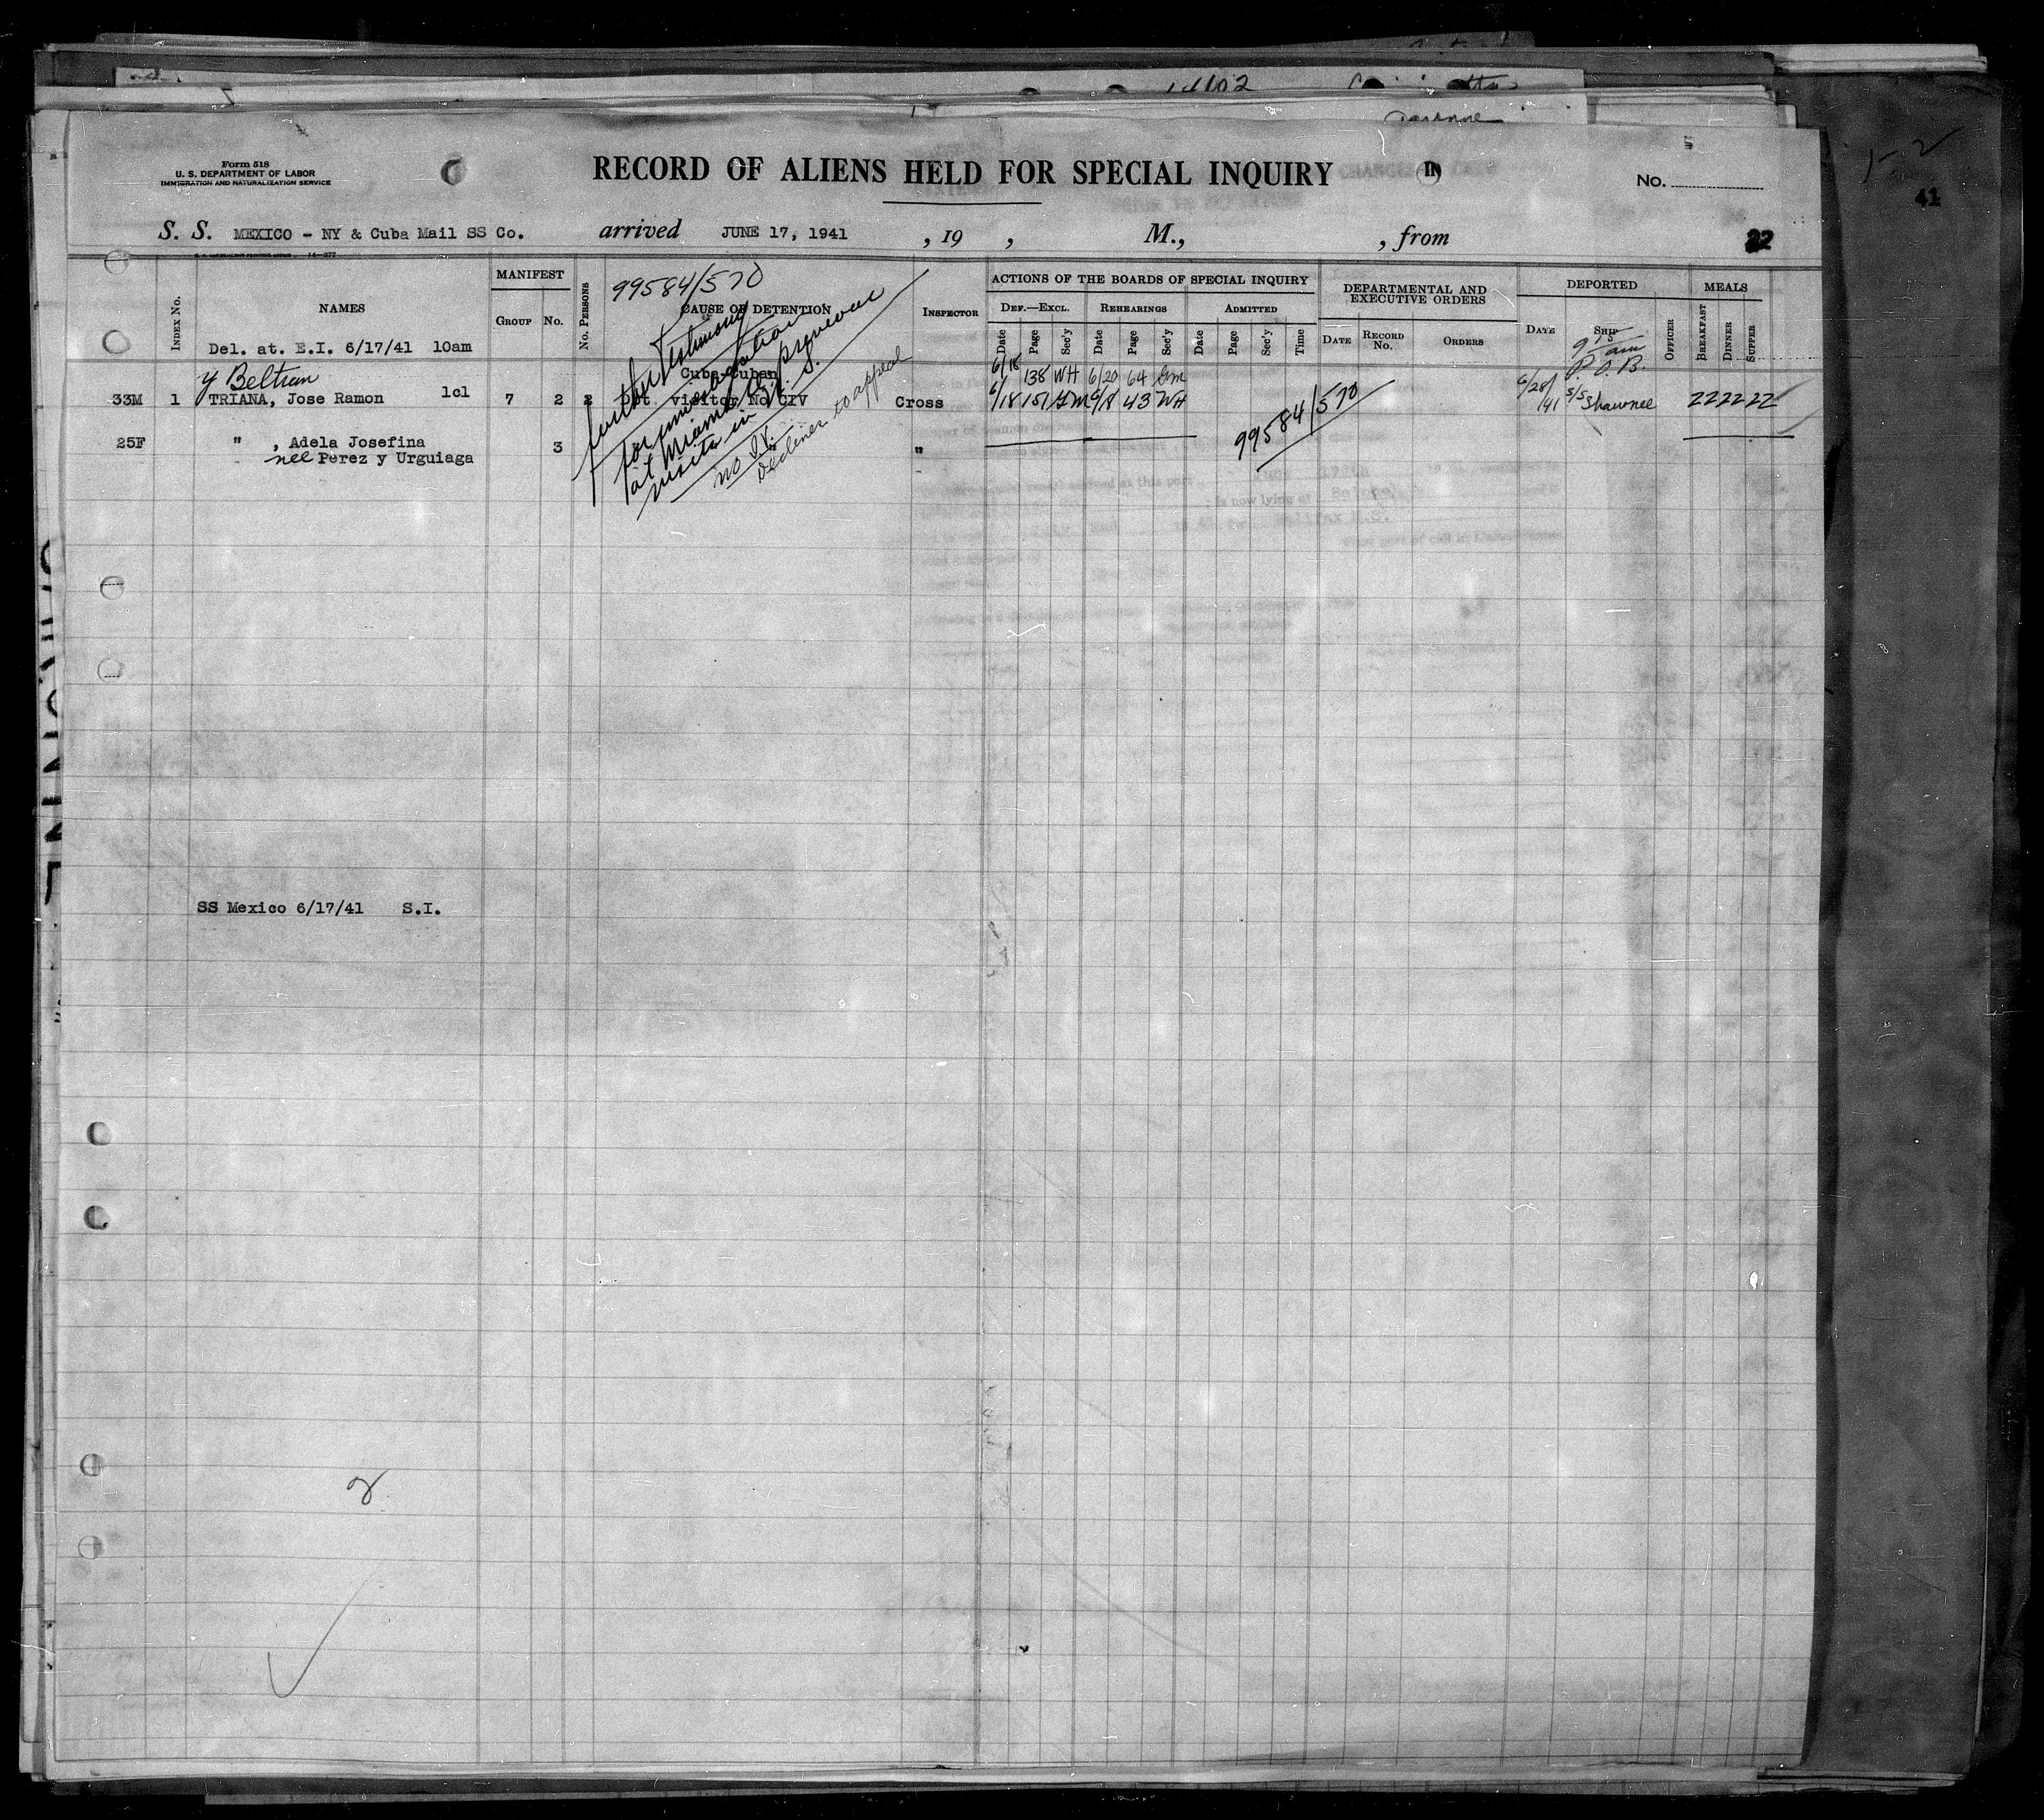 14102
Form 518
U. S. DEPARTMENT OF LABOR
IMMIGRATION AND NATURALIZATION SERVICE
RECORD OF ALIENS HELD FOR SPECIAL INQUIRY
IN
No.
41
S. S. MEXICO - NY & Cuba Mail SS Co. arrived JUNE 17, 1941 , 19 , M., , from
22
14—277
Index No.
NAMES
MANIFEST
Group
No.
No. Persons
99584/570
CAUSE OF DETENTION
Inspector
ACTIONS OF THE BOARDS OF SPECIAL INQUIRY
Def.—Excl.
Rehearings
Admitted
Date Page Sec'y Date Page Sec'y Date Page Sec'y Time
DEPARTMENTAL AND EXECUTIVE ORDERS
Date Record No. Orders
DEPORTED
Date Ship Officer
MEALS
Breakfast Dinner Supper
Del. at. E.I. 6/17/41 10am
y Beltran
33M 1 TRIANA, Jose Ramon 1cl 7 2 2
Cuba-Cuban
visitor No CIV
Cross
6/18 138 WH 6/20 64 Gm
6/18 151 GM 6/18 43 WH
99584/570
9 15 am
P. O. B.
6/28/41 S/S Shawnee
222222
25F " , Adela Josefina 3 "
nee Perez y Urguiaga
further testimony
for investigation
at Miami
visits in U. S.
no I.V.
Declines to appeal
SS Mexico 6/17/41 S.I.